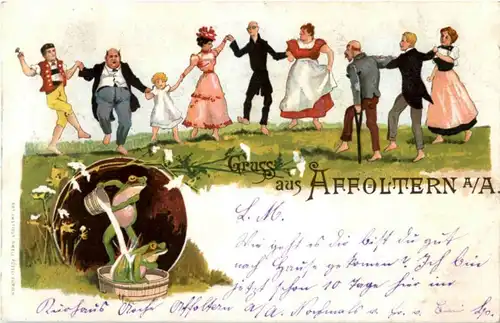 Gruss
aus AFFOLTERN A/A.
L. M.
Wie geht es dir bist du gut
nach Hause gekommen? Ich bin
jetzt schon 10 Tage hier im
Kurhaus Affoltern a/A. Nochmals